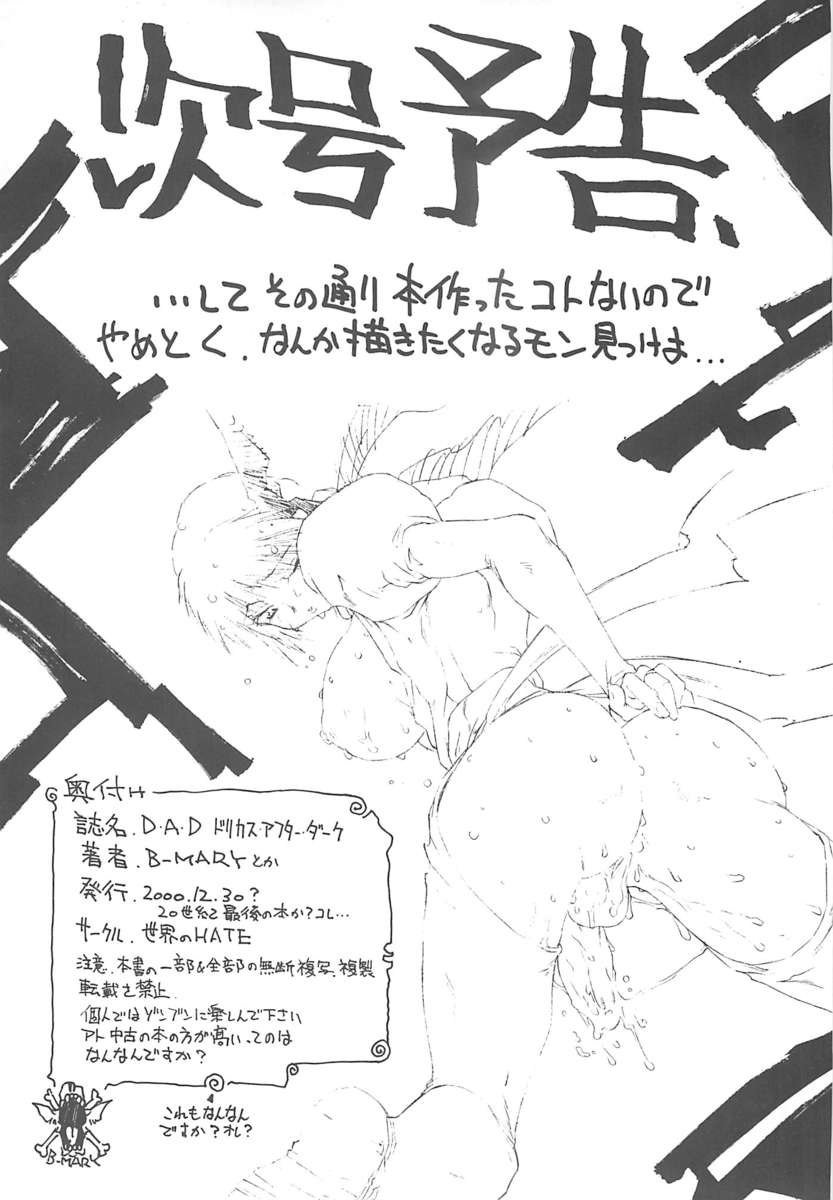 次号予告、
...して その通り 本作ったコトないので
やめとく、なんか描きたくなるモン見っけま...
奥付け
誌名.D・A・D ドリカス・アフター・ダーク
著者.B-MARYとか
発行.2000.12.30?
20世紀最後の本か?コレ...
サークル.世界のHATE
注意.本書の一部&全部の無断複写、複製
転載を禁止.
個人ではゾンブンに楽しんで下さい
アト中古の本の方が高いってのは
なんなんですか?
これもなんなん
ですか?オレ?
B-MARY